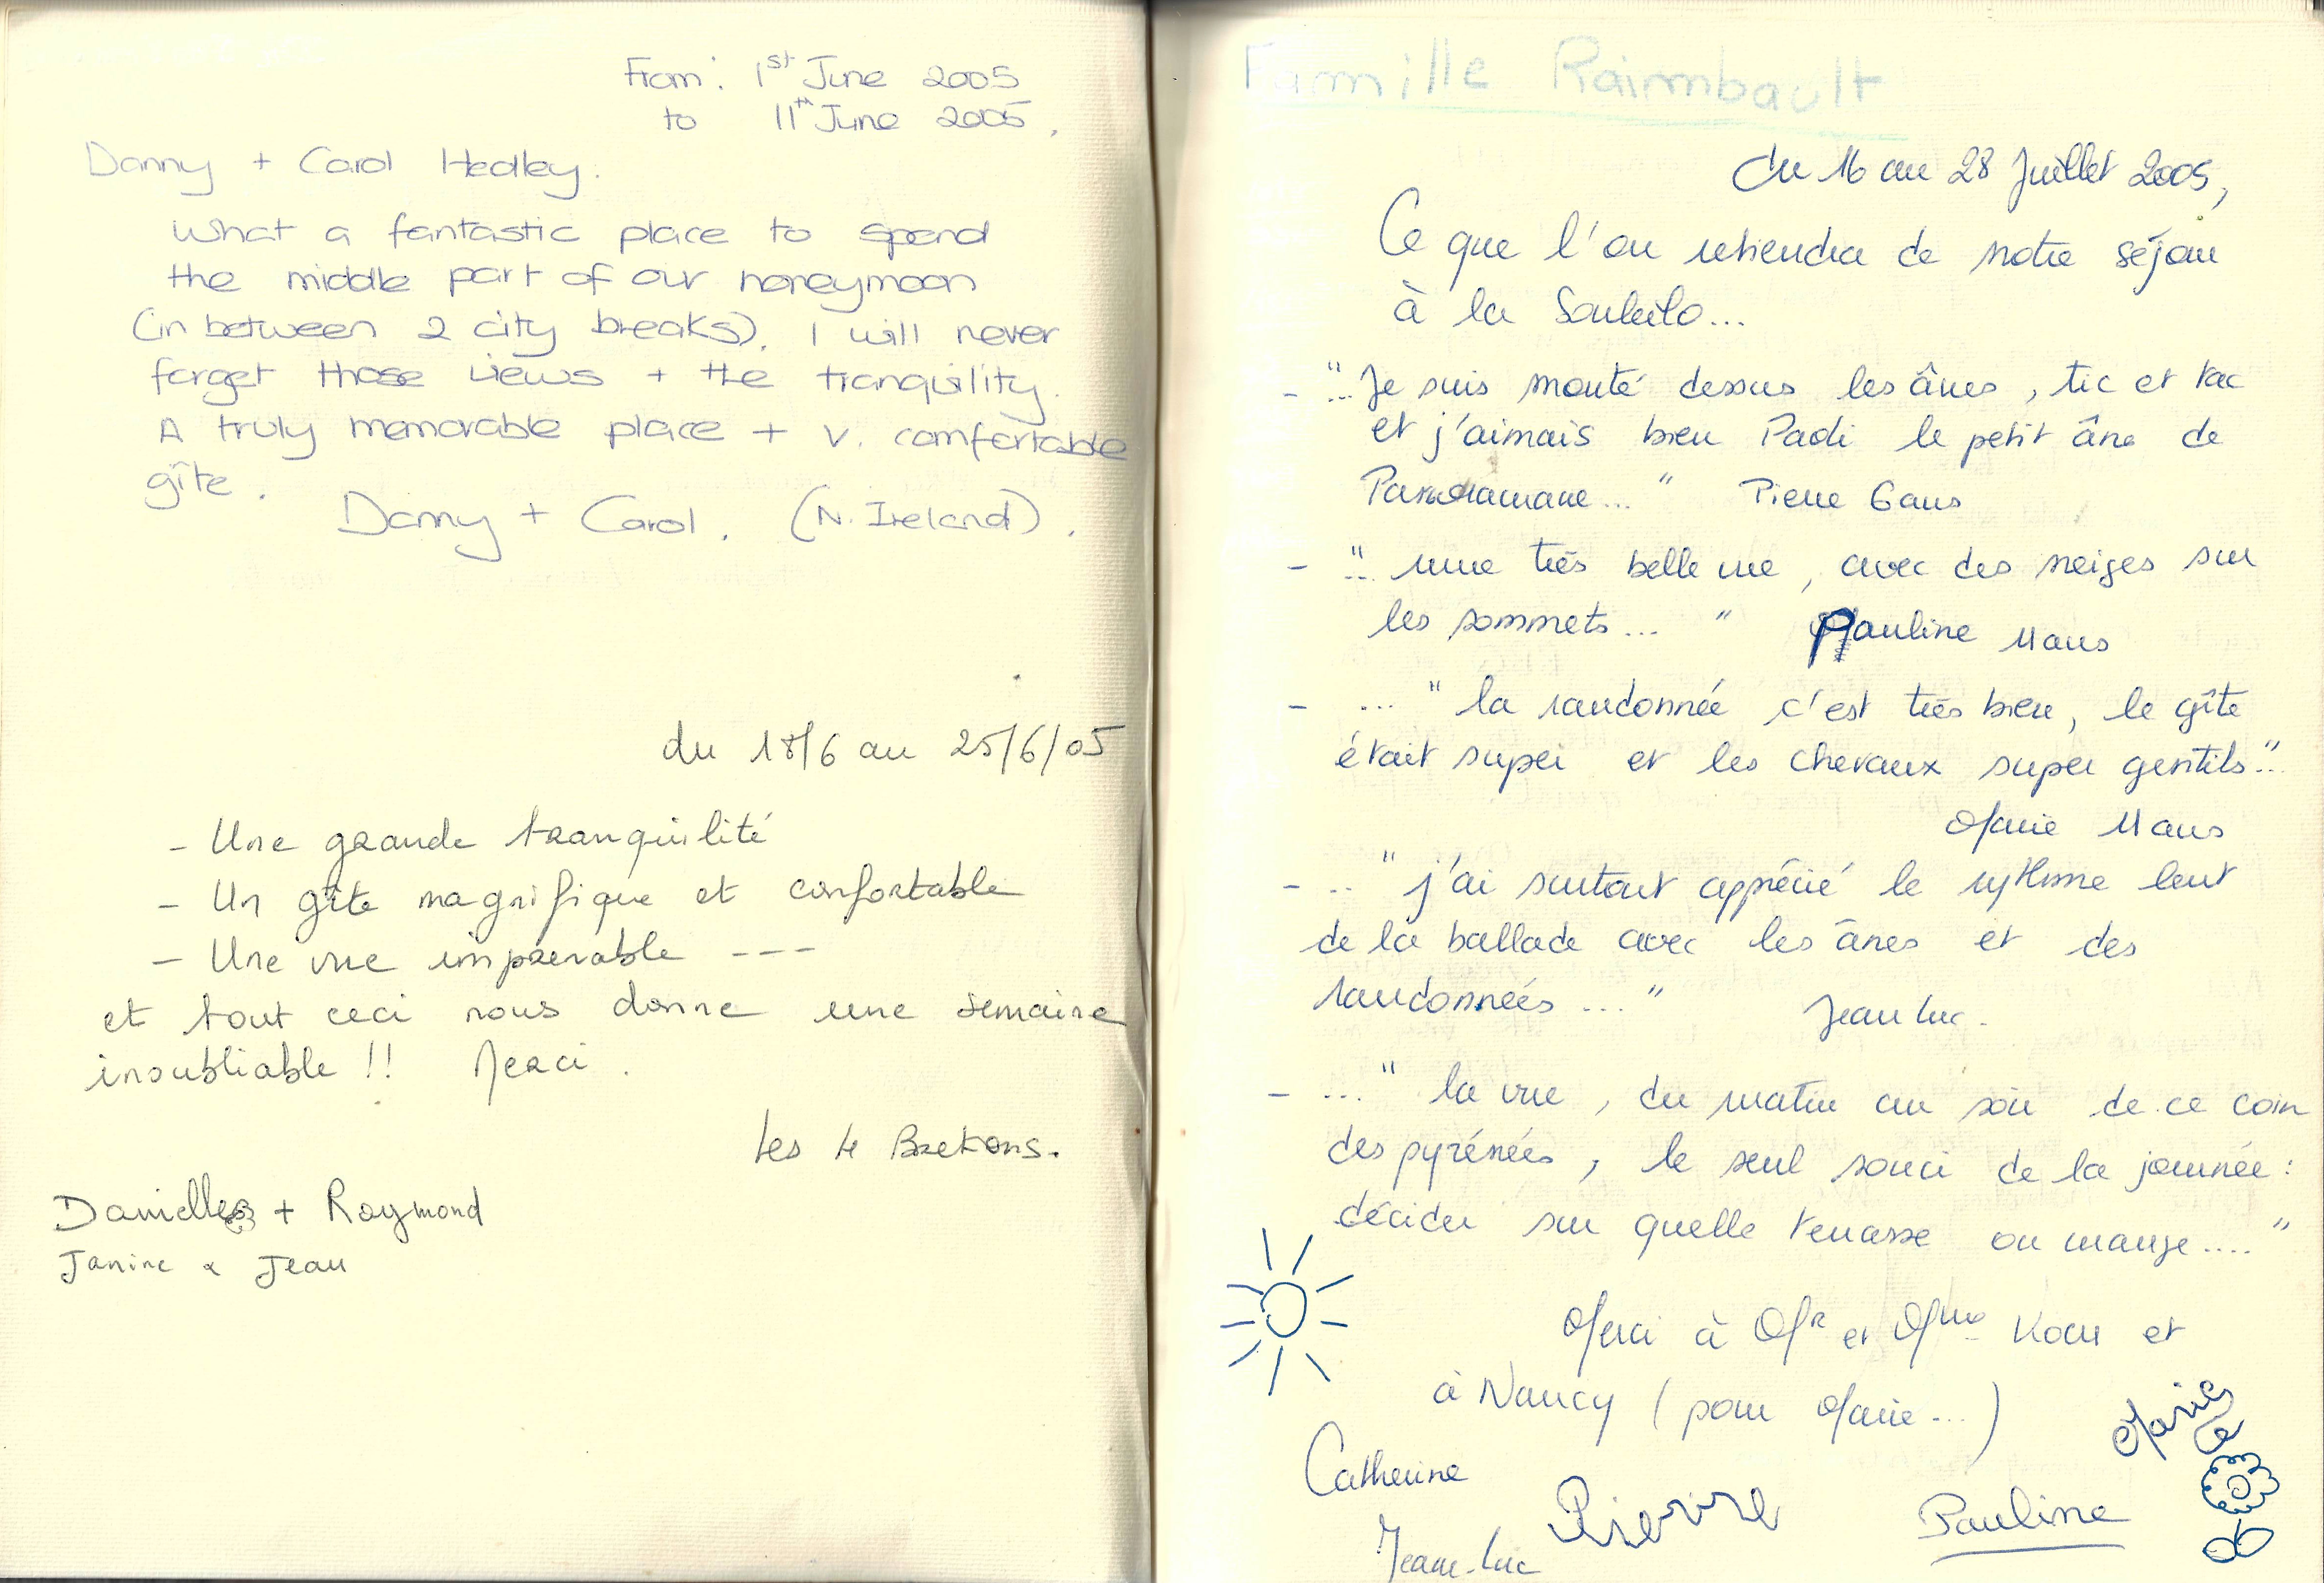 From: 1st June 2005
to 11th June 2005.
Danny + Carol Hedley.
What a fantastic place to spend
the middle part of our honeymoon
(in between 2 city breaks). I will never
forget those views + the tranquility.
A truly memorable place + v. comfortable
gîte.
Danny + Carol. (N. Ireland).
du 18/6 au 25/6/05
- Une grande tranquilité
- Un gîte magnifique et confortable
- Une vue imprenable ---
et tout ceci nous donne une semaine
inoubliable !! Merci.
Les 4 Bretons.
Danielle + Raymond
Janine & Jean
Famille Raimbault
du 16 au 28 Juillet 2005,
Ce que l'on retiendra de notre séjour
à la Souleilo...
- "... Je suis monté dessus les ânes, tic et tac
et j'aimais bien Padi le petit âne de
... " Pierre 6 ans
- "... une très belle vue, avec des neiges sur
les sommets... " Pauline 11 ans
- ... " la randonnée c'est très bien, le gîte
était super et les chevaux super gentils..."
Marie 11 ans
- ... " j'ai surtout apprécié le rythme lent
de la ballade avec les ânes et des
randonneés ... " Jean Luc.
- ... " la vue, du matin au soir de ce coin
des pyrénées, le seul souci de la journée :
décider sur quelle terrasse on mange.... "
Merci à Mr et Mme et
à Nancy (pour Marie...)
Marie
Catherine
Pierre
Pauline
Jean-Luc